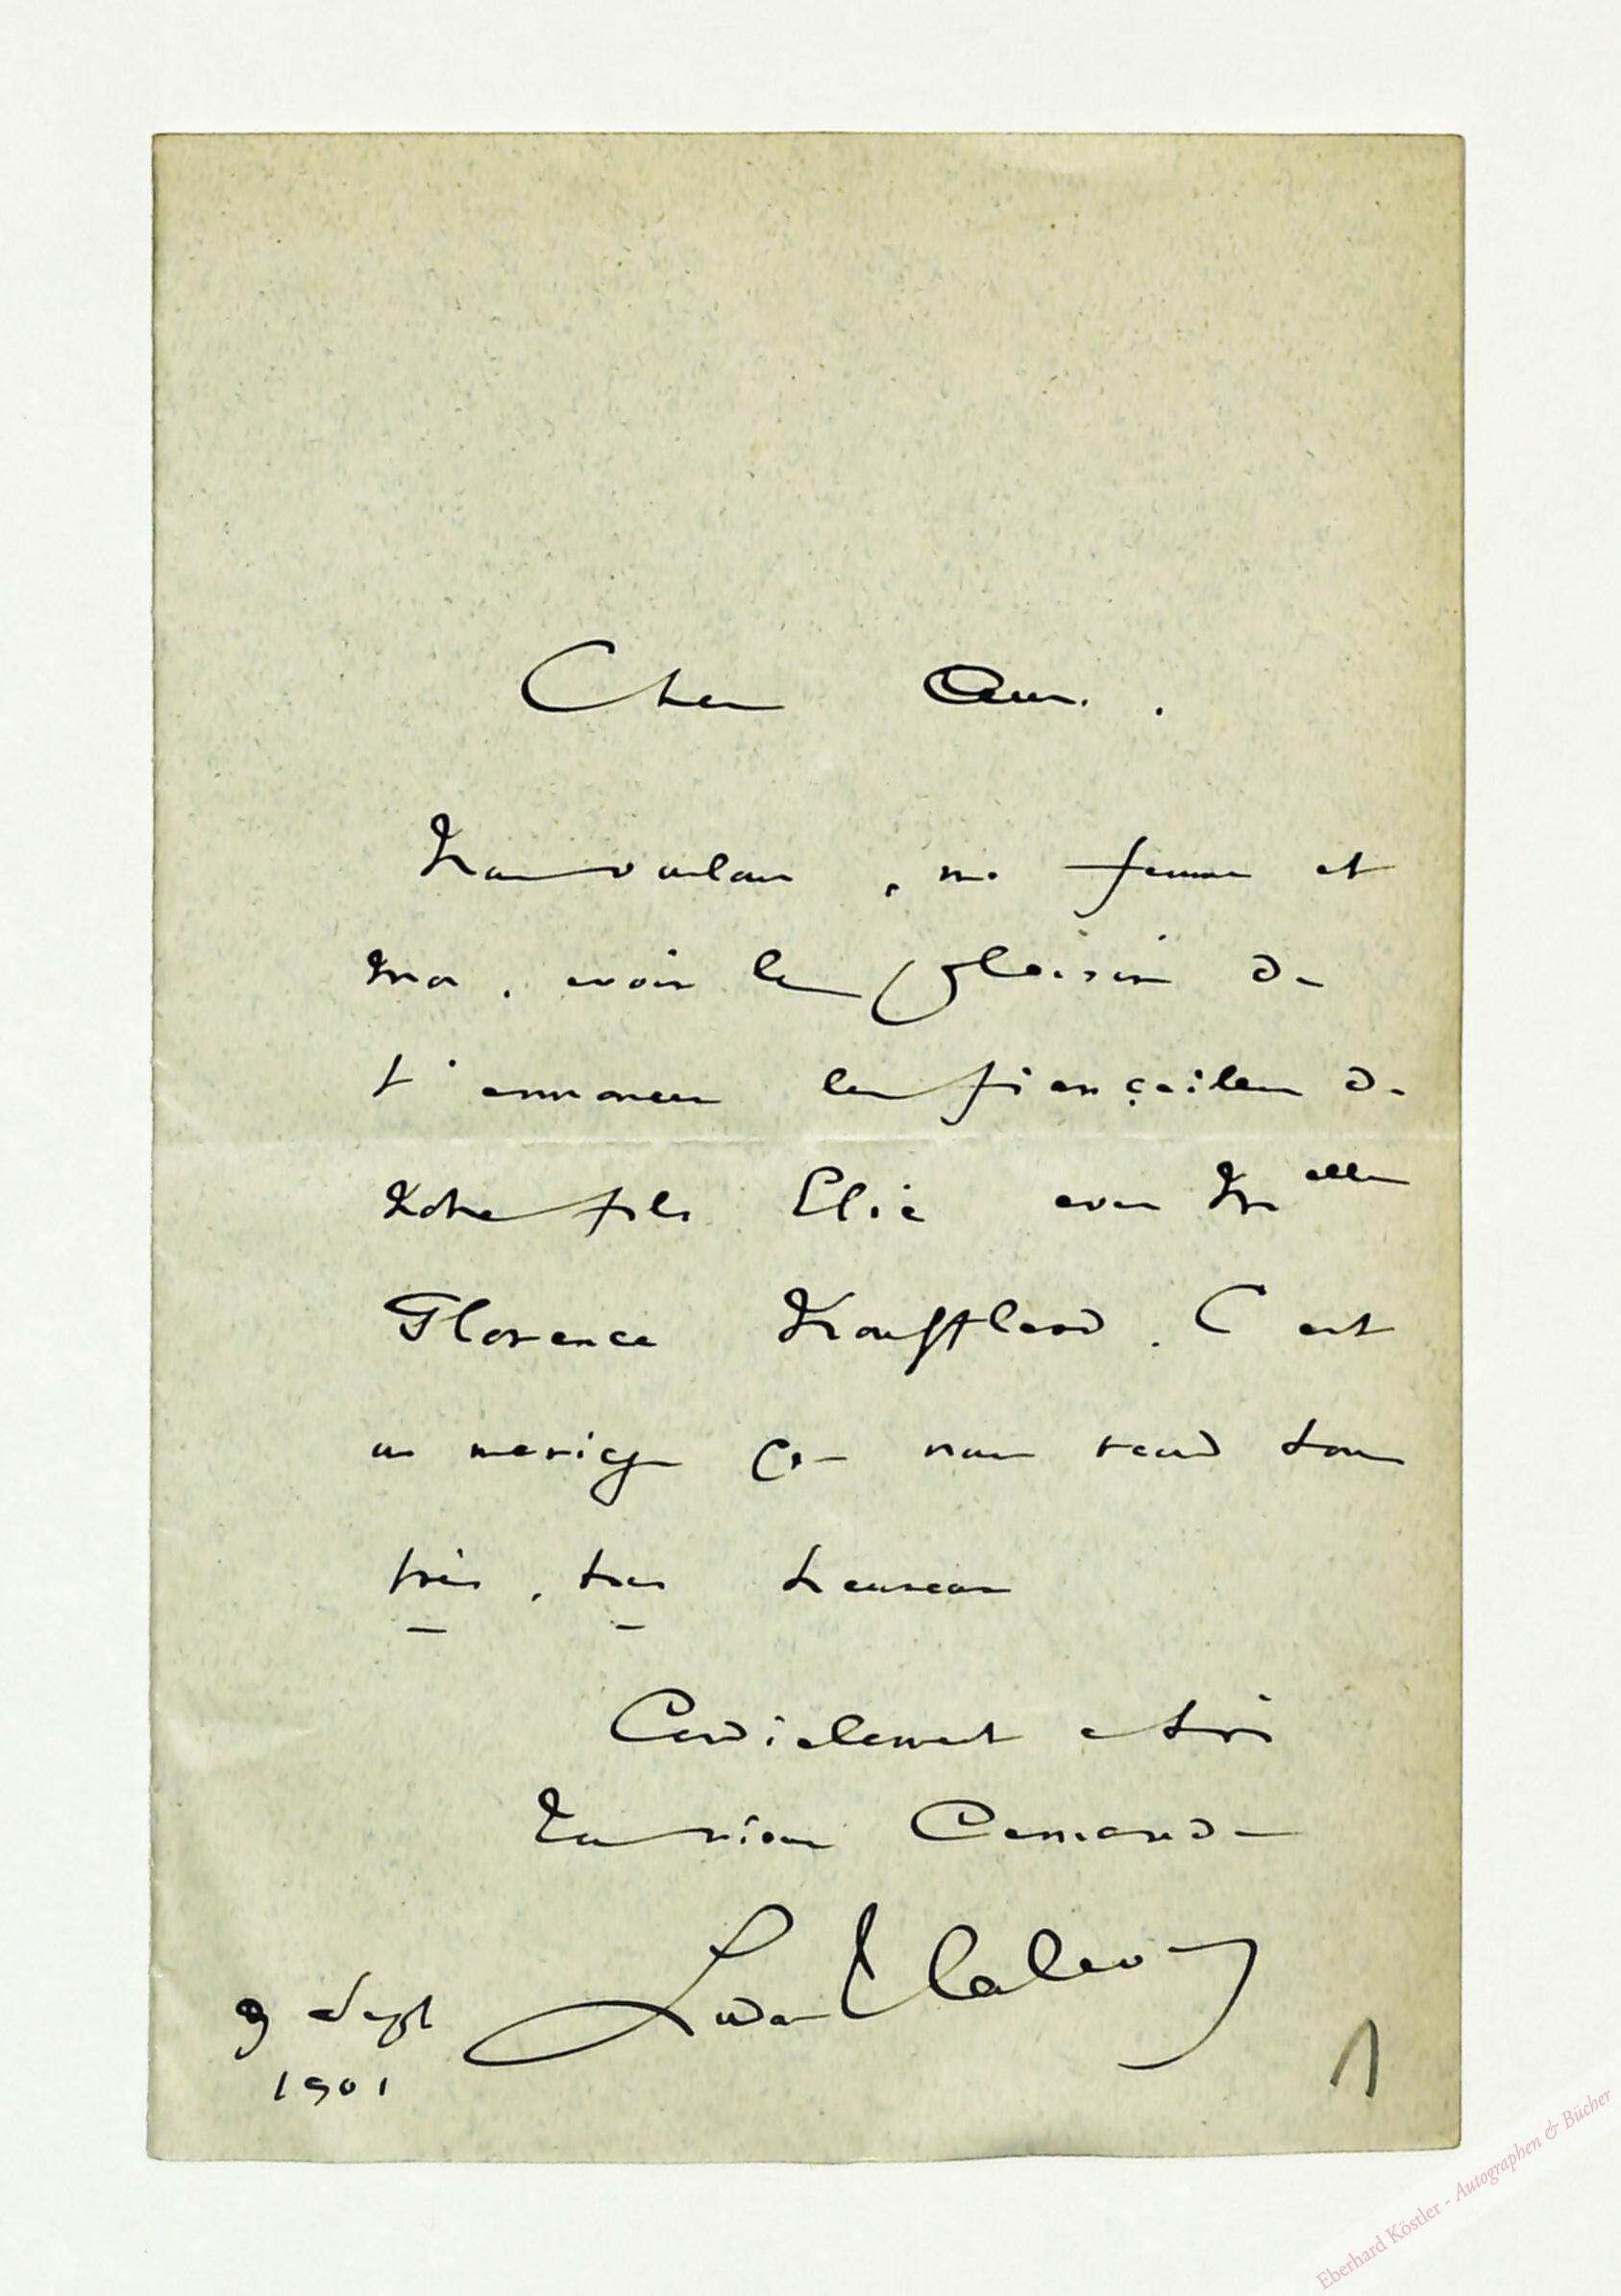 Cher Ami.
Nous voulons, ma femme et
moi, avoir le plaisir de
t'annoncer les fiançailles de
notre fils Elie avec Melle
Florence Noufflard. C'est
un mariage qui nous rend tous
très, très heureux
Cordialement à toi
Ton vieux Camarade
Ludovic Halévy
9 Sept
1901
1
Eberhard Köstler - Autographen & Bücher